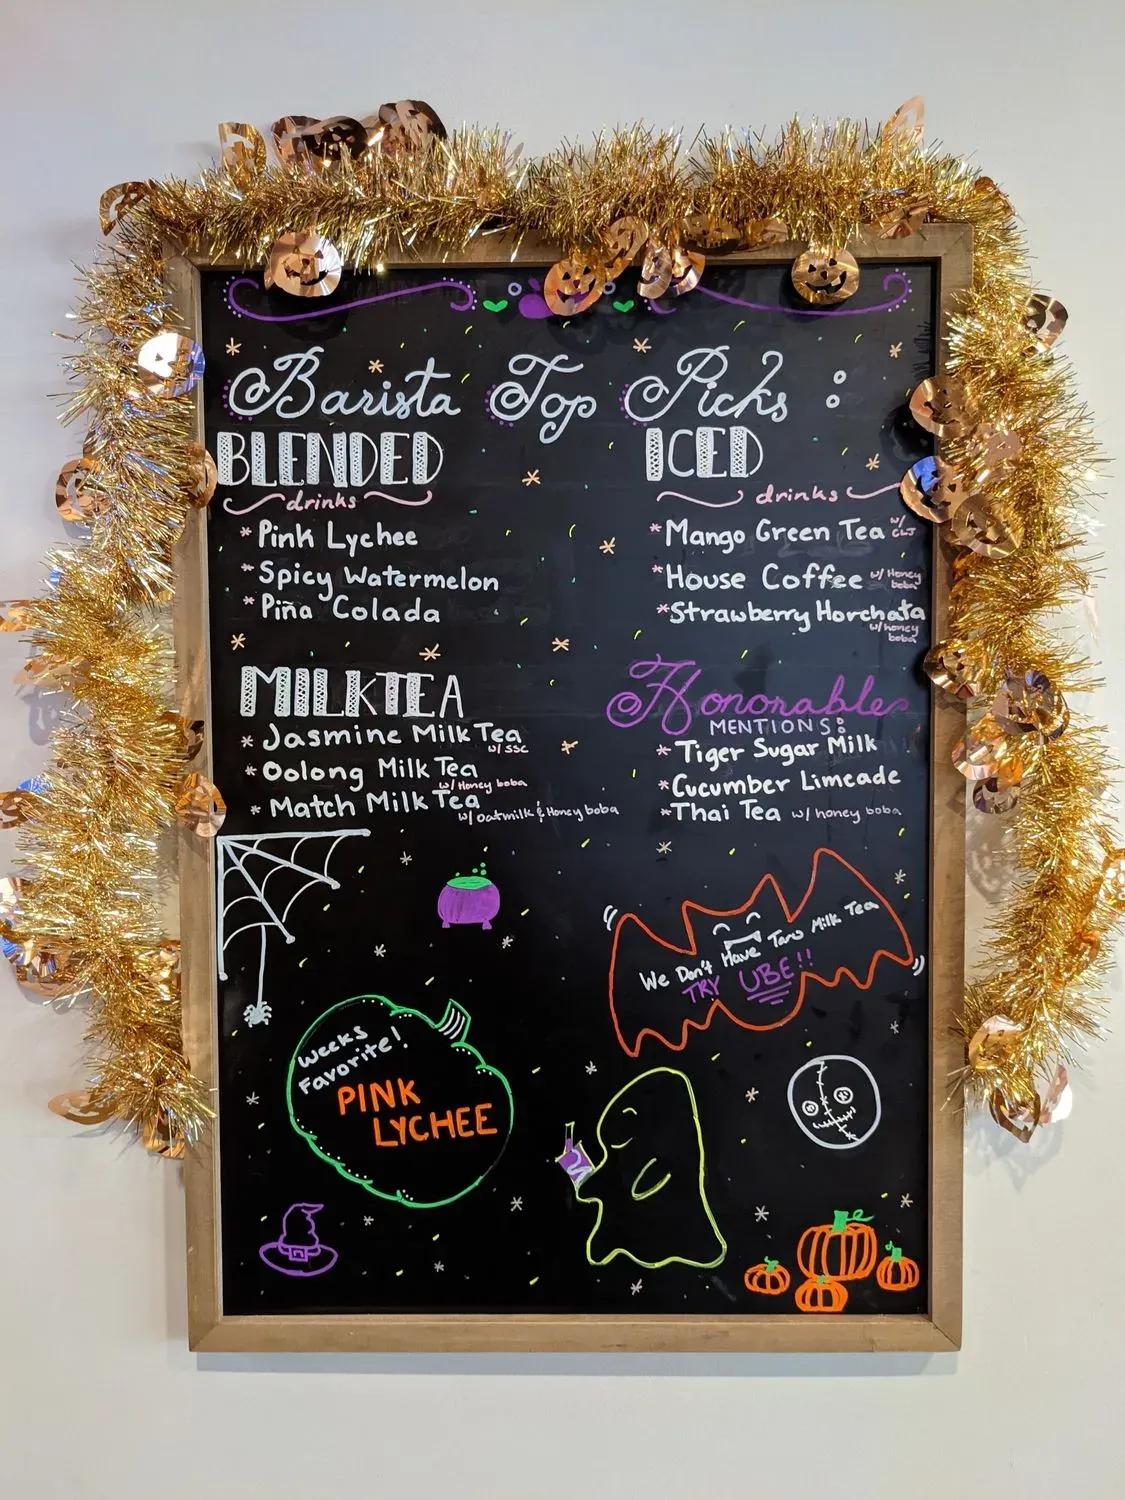 Barista Top Picks :
BLENDED
drinks
* Pink Lychee
* Spicy Watermelon
* Piña Colada
ICED
drinks
* Mango Green Tea w/ CLJ
* House Coffee w/ Honey boba
* Strawberry Horchata w/ honey boba
MILKTEA
* Jasmine Milk Tea w/ SSC
* Oolong Milk Tea w/ Honey boba
* Match Milk Tea w/ Oatmilk & Honey boba
Honorable
MENTIONS:
* Tiger Sugar Milk
* Cucumber Limeade
* Thai Tea w/ honey boba
We Don't Have Taro Milk Tea
TRY UBE!!
Weeks
Favorite!
PINK
LYCHEE